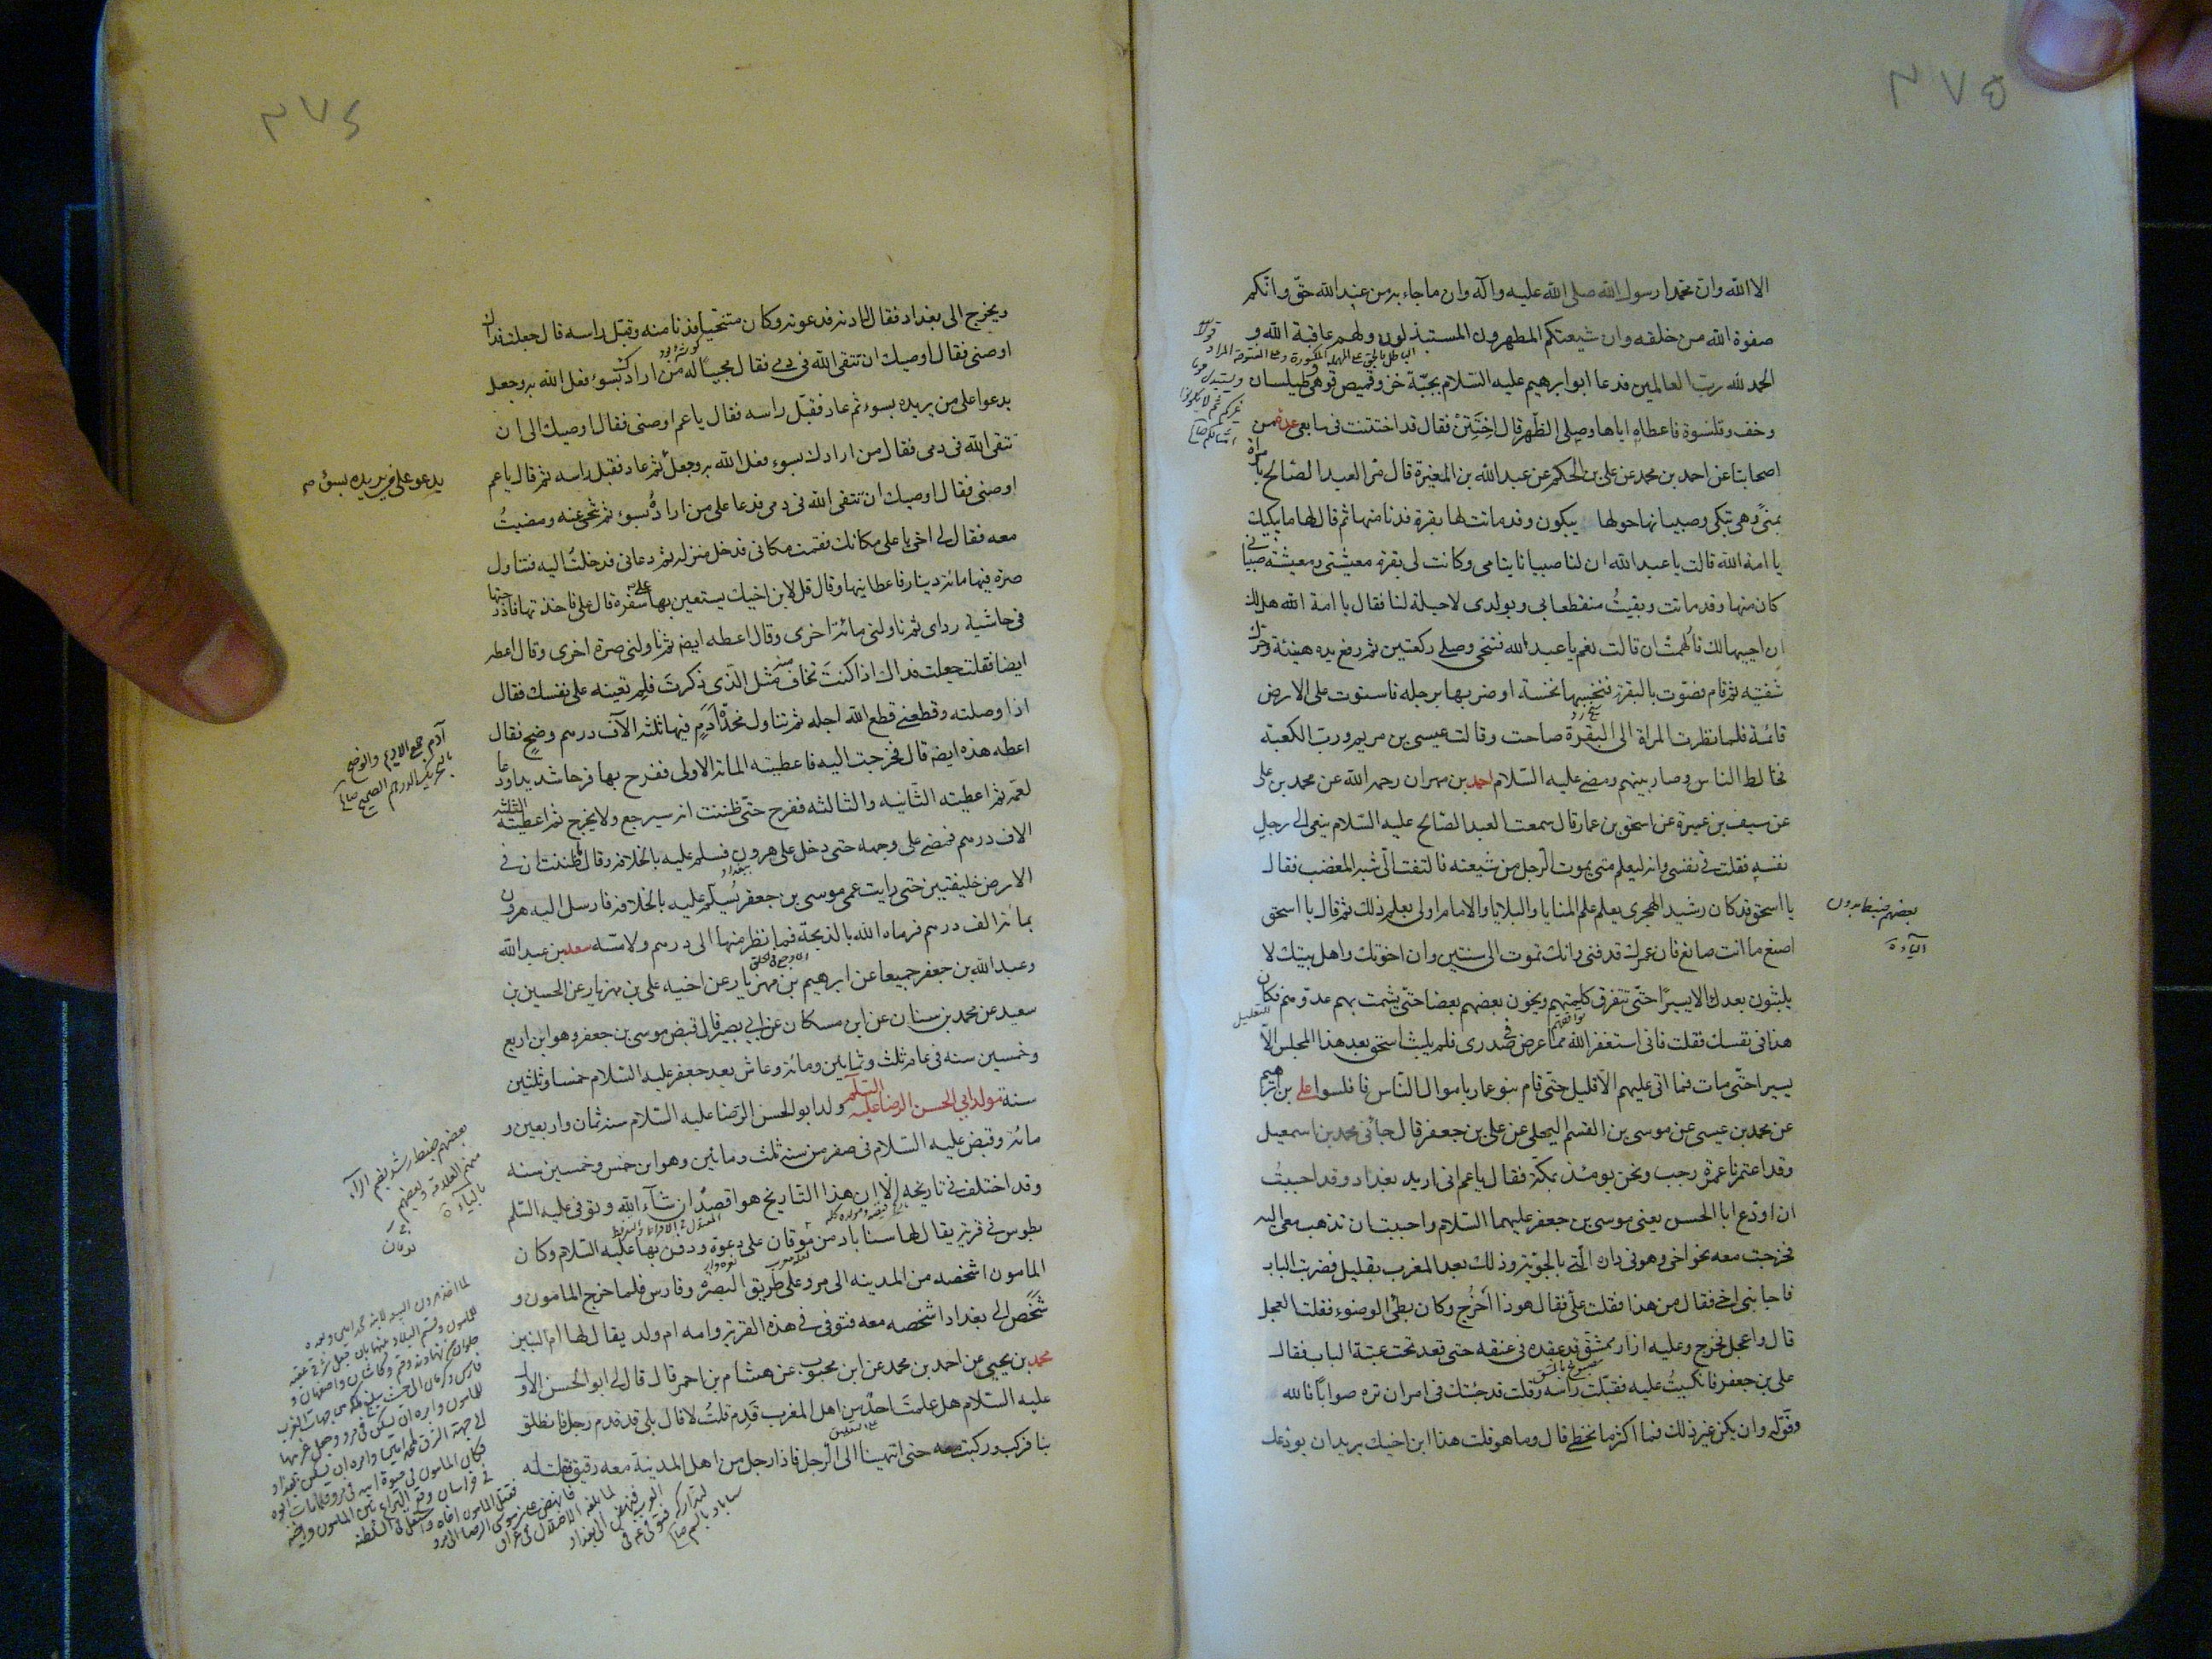 ٢٧٥
الا الله وان محمدا رسول الله صلى الله عليه واله وان ما جاء به من عند الله حق وانكم
صفوة الله من خلقه وان شيعتكم المطهرون المستبذلون ولهم عاقبة الله و
الحمد لله رب العالمين فدعا ابو ابرهيم عليه السلام بجبة خز وقميص قوهى وطيلسان
وخف وقلنسوة فاعطاه اياها وصلى الظهر وقال اختتن فقال قد اختتنت فى سابعى عدة من
اصحابنا عن احمد بن محمد عن على بن الحكم عن عبد الله بن المغيرة قال مر العبد الصالح بامراة
بمنى وهى تبكى وصبيانها حولها يبكون وقد ماتت لها بقرة فدنا منها ثم قال لها ما يبكيك
يا امة الله قالت يا عبد الله ان لنا صبيانا يتامى وكانت لى بقرة معيشتى ومعيشة صبيانى
كان منها وقد ماتت وبقيت منقطعا بى وبولدى لا حيلة لنا فقال يا امة الله هل لك
ان احييها لك فالهمت ان قالت نعم يا عبد الله فتنحى وصلى ركعتين ثم رفع يده هنيئة وحرك
شفتيه ثم قام فصوت بالبقرة فنخسها نخسة او ضربها برجله فاستوت على الارض
قائمة فلما نظرت المراة الى البقرة صاحت وقالت عيسى بن مريم ورب الكعبة
فخالط الناس وصار بينهم ومضى عليه السلام احمد بن مهران رحمه الله عن محمد بن على
عن سيف بن عميرة عن اسحق بن عمار قال سمعت العبد الصالح عليه السلام ينعى الى رجل
نفسه فقلت فى نفسى وانه ليعلم متى يموت الرجل من شيعته فالتفت الى شبه المغضب فقال
يا اسحق قد كان رشيد الهجرى يعلم علم المنايا والبلايا والامام اولى بعلم ذلك ثم قال يا اسحق
اصنع ما انت صانع فان عمرك قد فنى وانك تموت الى سنتين وان اخوتك واهل بيتك لا
يلبثون بعدك الا يسيرا حتى تتفرق كلمتهم ويخون بعضهم بعضا حتى يشمت بهم عدوهم فكان
هذا فى نفسك فقلت فانى استغفر الله مما عرض فى صدرى فلم يلبث اسحق بعد هذا المجلس الا
يسيرا حتى مات فما اتى عليهم الا قليل حتى قام بنو عمار باموال الناس فافلسوا على بن ابرهيم
عن محمد بن عيسى عن موسى بن القسم البجلى عن على بن جعفر قال جائنى محمد بن اسمعيل
وقد اعتمرنا عمرة رجب ونحن يومئذ بمكة فقال يا عم انى اريد بغداد وقد احببت
ان اودع ابا الحسن يعنى موسى بن جعفر عليهما السلام واحببت ان تذهب معى اليه
فخرجت معه نحو اخى وهو فى داره التى بالحوبة وذلك بعد المغرب بقليل فضربت الباب
فاجابنى اخى فقال من هذا فقلت على فقال هوذا اخرج وكان بطئ الوضوء فقلت العجل
قال واعجل فخرج وعليه ازار ممشق قد عقده فى عنقه حتى قعد تحت عتبة الباب فقال
على بن جعفر فانكببت عليه فقبلت راسه وقلت قد جئتك فى امر ان تره صوابا فالله
وفق له وان يكن غير ذلك فما اكثر ما نخطى قال وما هو قلت هذا ابن اخيك يريد ان يودعك
بعضهم ضبطه بدون
الياء
٢٧٤
ويخرج الى بغداد فقال لى ادنه فدعوته وكان متنحيا فدنا منه وقبل راسه قال جعلت فداك
اوصنى فقال اوصيك ان تتقى الله فى دمى فقال مجيبا له من ارادك بسوء فعل الله به وجعل
يدعوا على من يريده بسوء ثم عاد فقبل راسه فقال يا عم اوصنى فقال اوصيك الى ان
تتقى الله فى دمى فقال من ارادك بسوء فعل الله به وجعل ثم عاد فقبل راسه ثم قال يا عم
اوصنى فقال اوصيك ان تتقى الله فى دمى فدعا على من اراده بسوء ثم تنحى عنه ومضيت
معه فقال لى اخى يا على مكانك فقمت مكانى فدخل منزله ثم دعانى فدخلت اليه فتناول
صرة فيها مائة دينار فاعطانيها وقال قل لابن اخيك يستعين بها على سفره قال على فاخذتها فادرجتها
فى حاشية رداى ثم ناولنى مائة اخرى وقال اعطه ايضا ثم ناولنى صرة اخرى وقال اعطه
ايضا فقلت جعلت فداك اذا كنت تخاف منه مثل الذى ذكرت فلم تعينه على نفسك فقال
اذا وصلته وقطعنى قطع الله اجله ثم تناول مخدة ادم فيها ثلثه الآف درهم وضح فقال
اعطه هذه ايضا قال فخرجت اليه فاعطيته المائة الاولى ففرح بها فرحا شديدا ودعا
لعمه ثم اعطيته الثانيه والثالثه ففرح حتى ظننت انه سيرجع ولا يخرج ثم اعطيته الثلثة
الاف درهم فمضى على وجهه حتى دخل على هرون فسلم عليه بالخلافة وقال ما ظننت ان فى
الارض خليفتين حتى رايت عمى موسى بن جعفر يسلم عليه بالخلافة فارسل اليه هرون
بمائة الف درهم فرماه الله بالذبحة فما نظر منها الى درهم ولا مسه سعد بن عبد الله
وعبد الله بن جعفر جميعا عن ابرهيم بن مهزيار عن اخيه على بن مهزيار عن الحسين بن
سعيد عن محمد بن سنان عن ابن مسكان عن ابى بصير قال قبض موسى بن جعفر وهو ابن اربع
وخمسين سنه فى عام ثلث وثمانين ومائة وعاش بعد جعفر عليه السلام خمسا وثلثين
سنة مولد ابى الحسن الرضا عليه السلم ولد ابو الحسن الرضا عليه السلام سنة ثمان واربعين و
مائة وقبض عليه السلام فى صفر من سنة ثلث ومائتين وهو ابن خمس وخمسين سنه
وقد اختلف فى تاريخه الا ان هذا التاريخ هو اقصد ان شاء الله وتوفى عليه السلم
بطوس فى قرية يقال لها سناباد من موقان على دعوة ودفن بها عليه السلام وكان
المامون اشخصه من المدينه الى مرو على طريق البصرة وفارس فلما خرج المامون و
شخص الى بغداد اشخصه معه فتوفى فى هذه القرية وامه ام ولد يقال لها ام البنين
محمد بن يحيى عن احمد بن محمد عن ابن محبوب عن هشام بن احمر قال قال لى ابو الحسن الاول
عليه السلام هل علمت احدا من اهل المغرب قدم قلت لا قال بلى قد قدم رجل فانطلق
بنا فركب وركبت معه حتى انتهينا الى الرجل فاذا رجل من اهل المدينة معه رقيق فقلت له
يدعو على من يريده بسوء
آدم جمع الاديم والوضح
بالتحريك الدرهم الصحيح